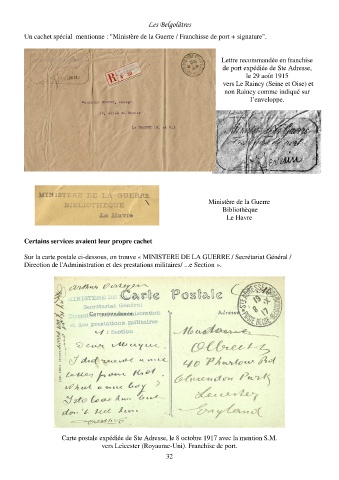 Les Belgolâtres
Un cachet spécial mentionne : "Ministère de la Guerre / Franchisse de port + signature".
Lettre recommandée en franchise
de port expédiée de Ste Adresse,
le 29 août 1915
vers Le Raincy (Seine et Oise) et
non Raincy comme indiqué sur
l'enveloppe.
MINISTERE DE LA GUERRE
BIBLIOTHÈQUE
Le Havre
Ministère de la Guerre
Bibliothèque
Le Havre
Certains services avaient leur propre cachet
Sur la carte postale ci-dessous, on trouve « MINISTERE DE LA GUERRE / Secrétariat Général /
Direction de l'Administration et des prestations militaires/ ...e Section ».
MINISTERE DE LA GUERRE
Carte Postale
Secrétariat Général
Correspondance
et des prestations militaires
Section
Adresse
Dear
I did receive a nice
letter from
What a nice boy ?
I should love him but
don't tell him
Madame
Olbrechts
40
Clarendon Park
Leicester
England
Carte postale expédiée de Ste Adresse, le 8 octobre 1917 avec la mention S.M.
vers Leicester (Royaume-Uni). Franchise de port.
32